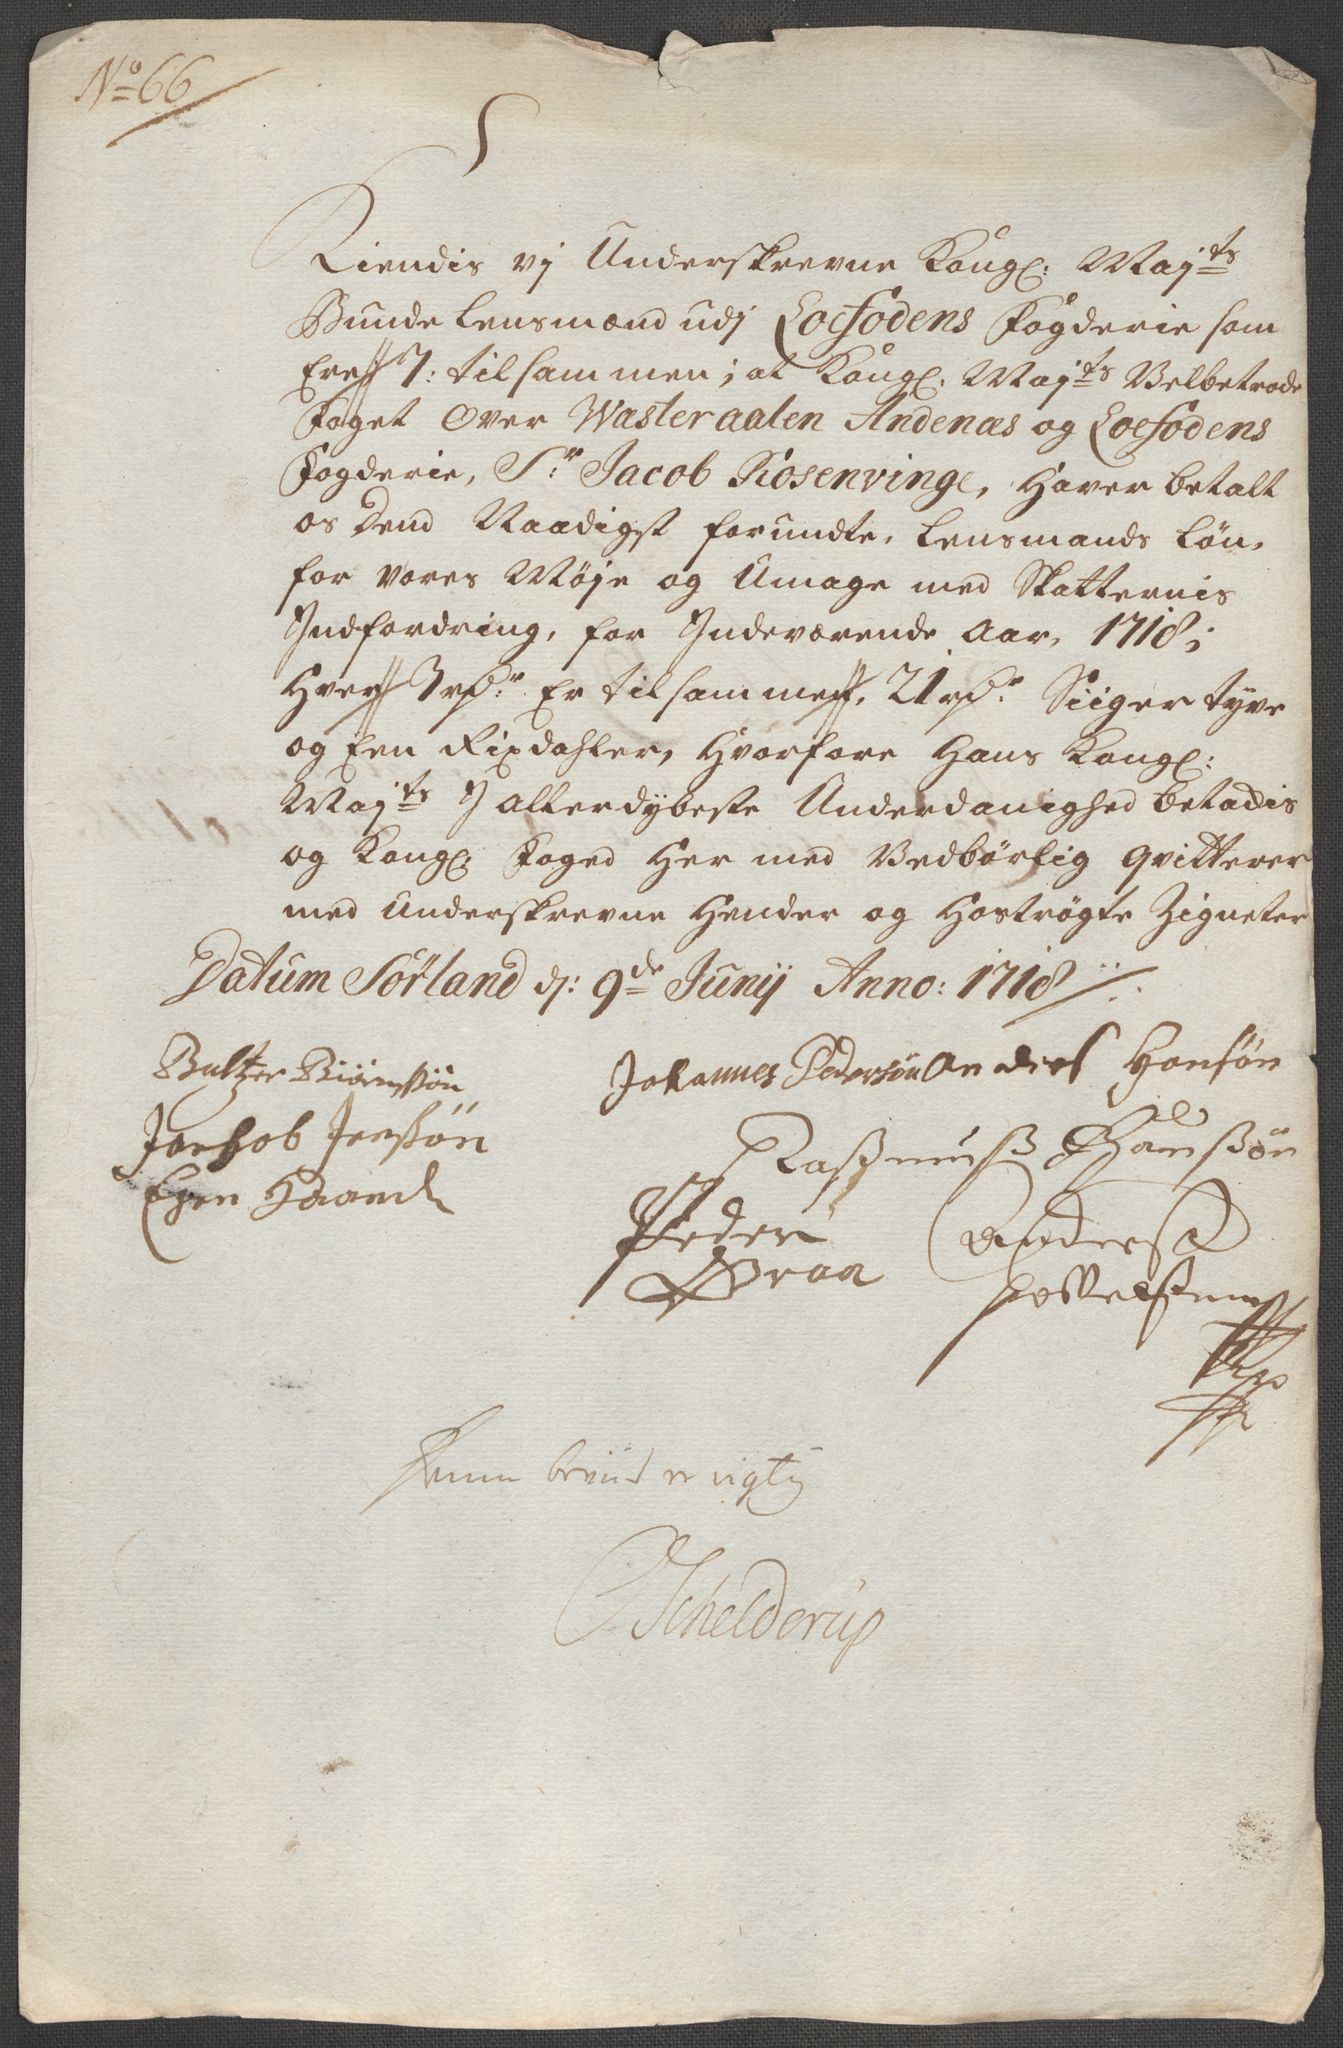 No 66
Kiendis vj Underskrevne Kongl: Majts
Bunde Lensmænd udj Loefodens Fogderie som
Ere 7: tilsammen; at Kongl. Majts Velbetrode
Foget Over Wasteraalen Andenæs og Loefodens
Fogderie, Sr Jacob Rosenvinge, Haver betalt
os Dend Naadigst forundte, Lensmands Løn,
for vores Møje og Umage med Skatternis
Indfordring, for Indeværende Aar, 1718;
Hver 3 rdr Er tilsammen, 21 rdr Siiger tyve
og Een Rixdahler, Hvorfore Hans Kongl:
Majts I allerdybeste Underdanighed betackis
og Kongl: Foged Her med Vedbørlig qvitterer
med Underskrevne Hender og Hostrøgte Zigneter
Datum Sørland d: 9de Junij Anno: 1718
Baltzer Biørnssøn Johannes Pedersøn Anders Hansøn
Jachob Jenssøn Rasmus Hanssøn
Egen Haand Peder Anders
Graa
Denne beviis er rigtig
Schelderup